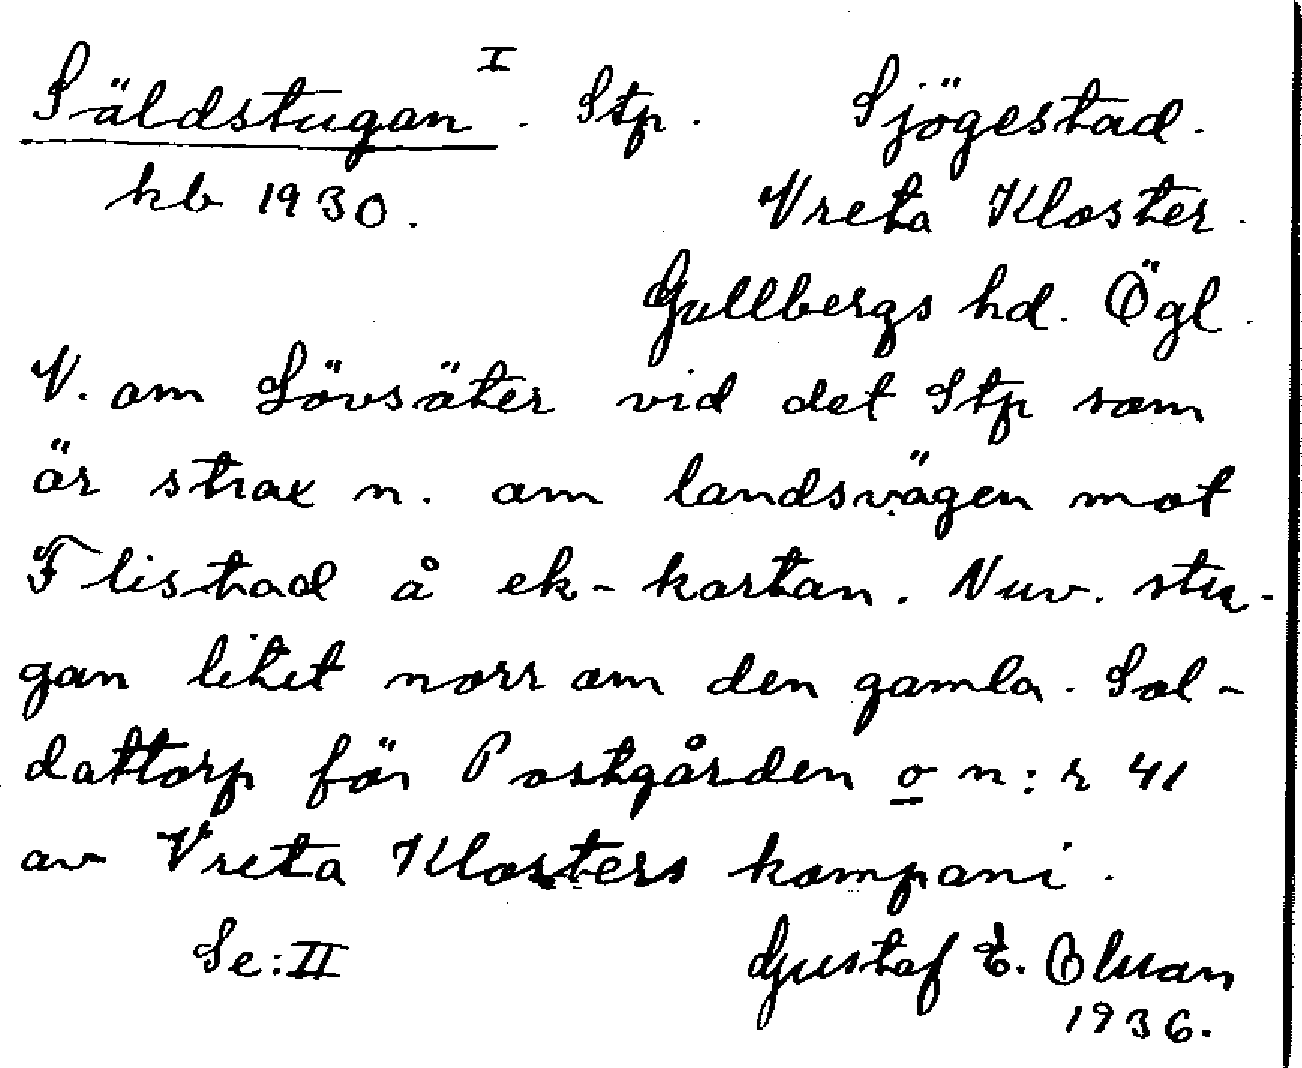 Säldstugan I. Stp. Sjögestad.
kb 1930. Vreta Kloster.
Gullbergs hd. Ögl.
V. om Lövsäter vid det Stp som
är strax n. om landsvägen mot
Flistad å ek-kartan. Nuv. stu-
gan litet norr om den gamla. Sol-
dattorp för Postgården o n:r 41
av Vreta Klosters kompani.
Se: II Gustaf E. Olson
1936.